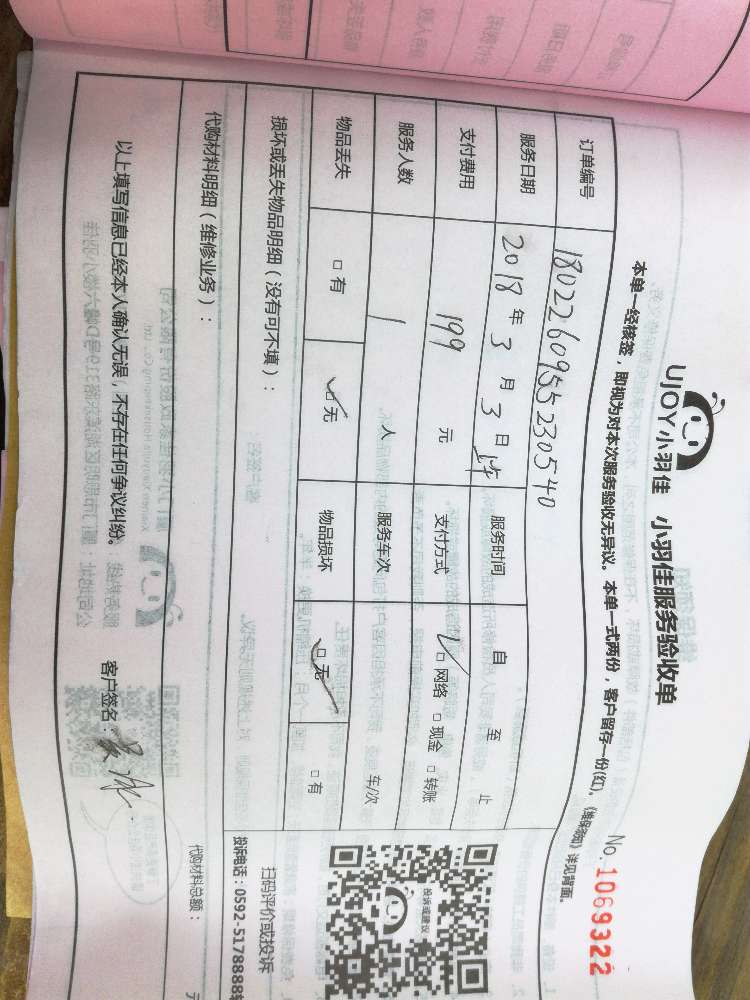 UJOY小羽佳 小羽佳服务验收单
No.1069322
本单一经核签，即视为对本次服务验收无异议。本单一式两份，客户留存一份(红)。《维保须知》详见背面。
订单编号 1802260955230540
服务日期 2018年3月3日 服务时间 自 至 止
支付费用 199 元 支付方式 □网络 □现金 □转账
服务人数 1 人 服务车次 车/次
物品丢失 □有 □无 物品损坏 □无 □有
损坏或丢失物品明细（没有可不填）：
代购材料明细（维修业务）：
代购材料总额：
以上填写信息已经本人确认无误，不存在任何争议纠纷。 客户签名：
投诉或建议
扫码评价或投诉
投诉电话：0592-5178888转